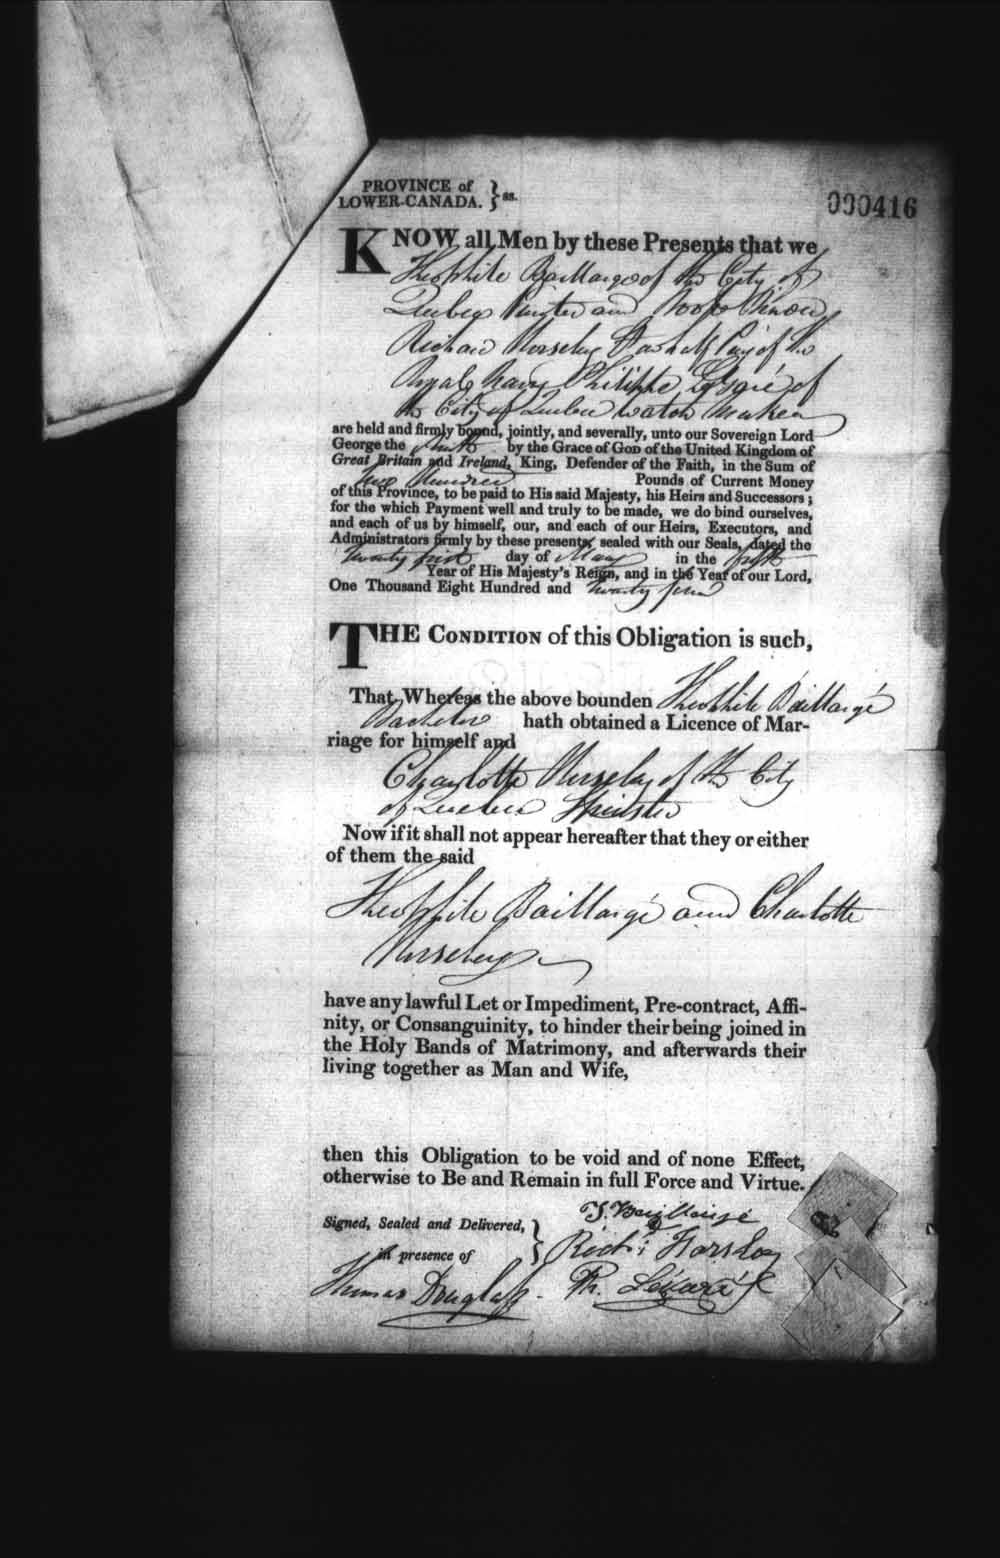 PROVINCE of
LOWER-CANADA. } ss.
000416
KNOW all Men by these Presents that we
Theophile Baillargé of the City of
Quebec and
Richard of the
Royal Navy Philippe Légaré of
the City of Quebec Watch Maker
are held and firmly bound, jointly, and severally, unto our Sovereign Lord
George the by the Grace of GOD of the United Kingdom of
Great Britain and Ireland, King, Defender of the Faith, in the Sum of
Two Hundred Pounds of Current Money
of this Province, to be paid to His said Majesty, his Heirs and Successors ;
for the which Payment well and truly to be made, we do bind ourselves,
and each of us by himself, our, and each of our Heirs, Executors, and
Administrators firmly by these presents, sealed with our Seals, dated the
twenty first day of May in the fifth
Year of His Majesty's Reign, and in the Year of our Lord,
One Thousand Eight Hundred and twenty four
THE CONDITION of this Obligation is such,
That Whereas the above bounden Theophile Baillargé
Bachelor hath obtained a Licence of Mar-
riage for himself and
Charlotte Horseley of the City
of Quebec Spinster
Now if it shall not appear hereafter that they or either
of them the said
Theophile Baillargé and Charlotte
Horseley
have any lawful Let or Impediment, Pre-contract, Affi-
nity, or Consanguinity, to hinder their being joined in
the Holy Bands of Matrimony, and afterwards their
living together as Man and Wife,
then this Obligation to be void and of none Effect,
otherwise to Be and Remain in full Force and Virtue.
T. Baillairgé
Signed, Sealed and Delivered, }
in presence of
Richd Horsley
Thomas Douglass
Ph. Légaré